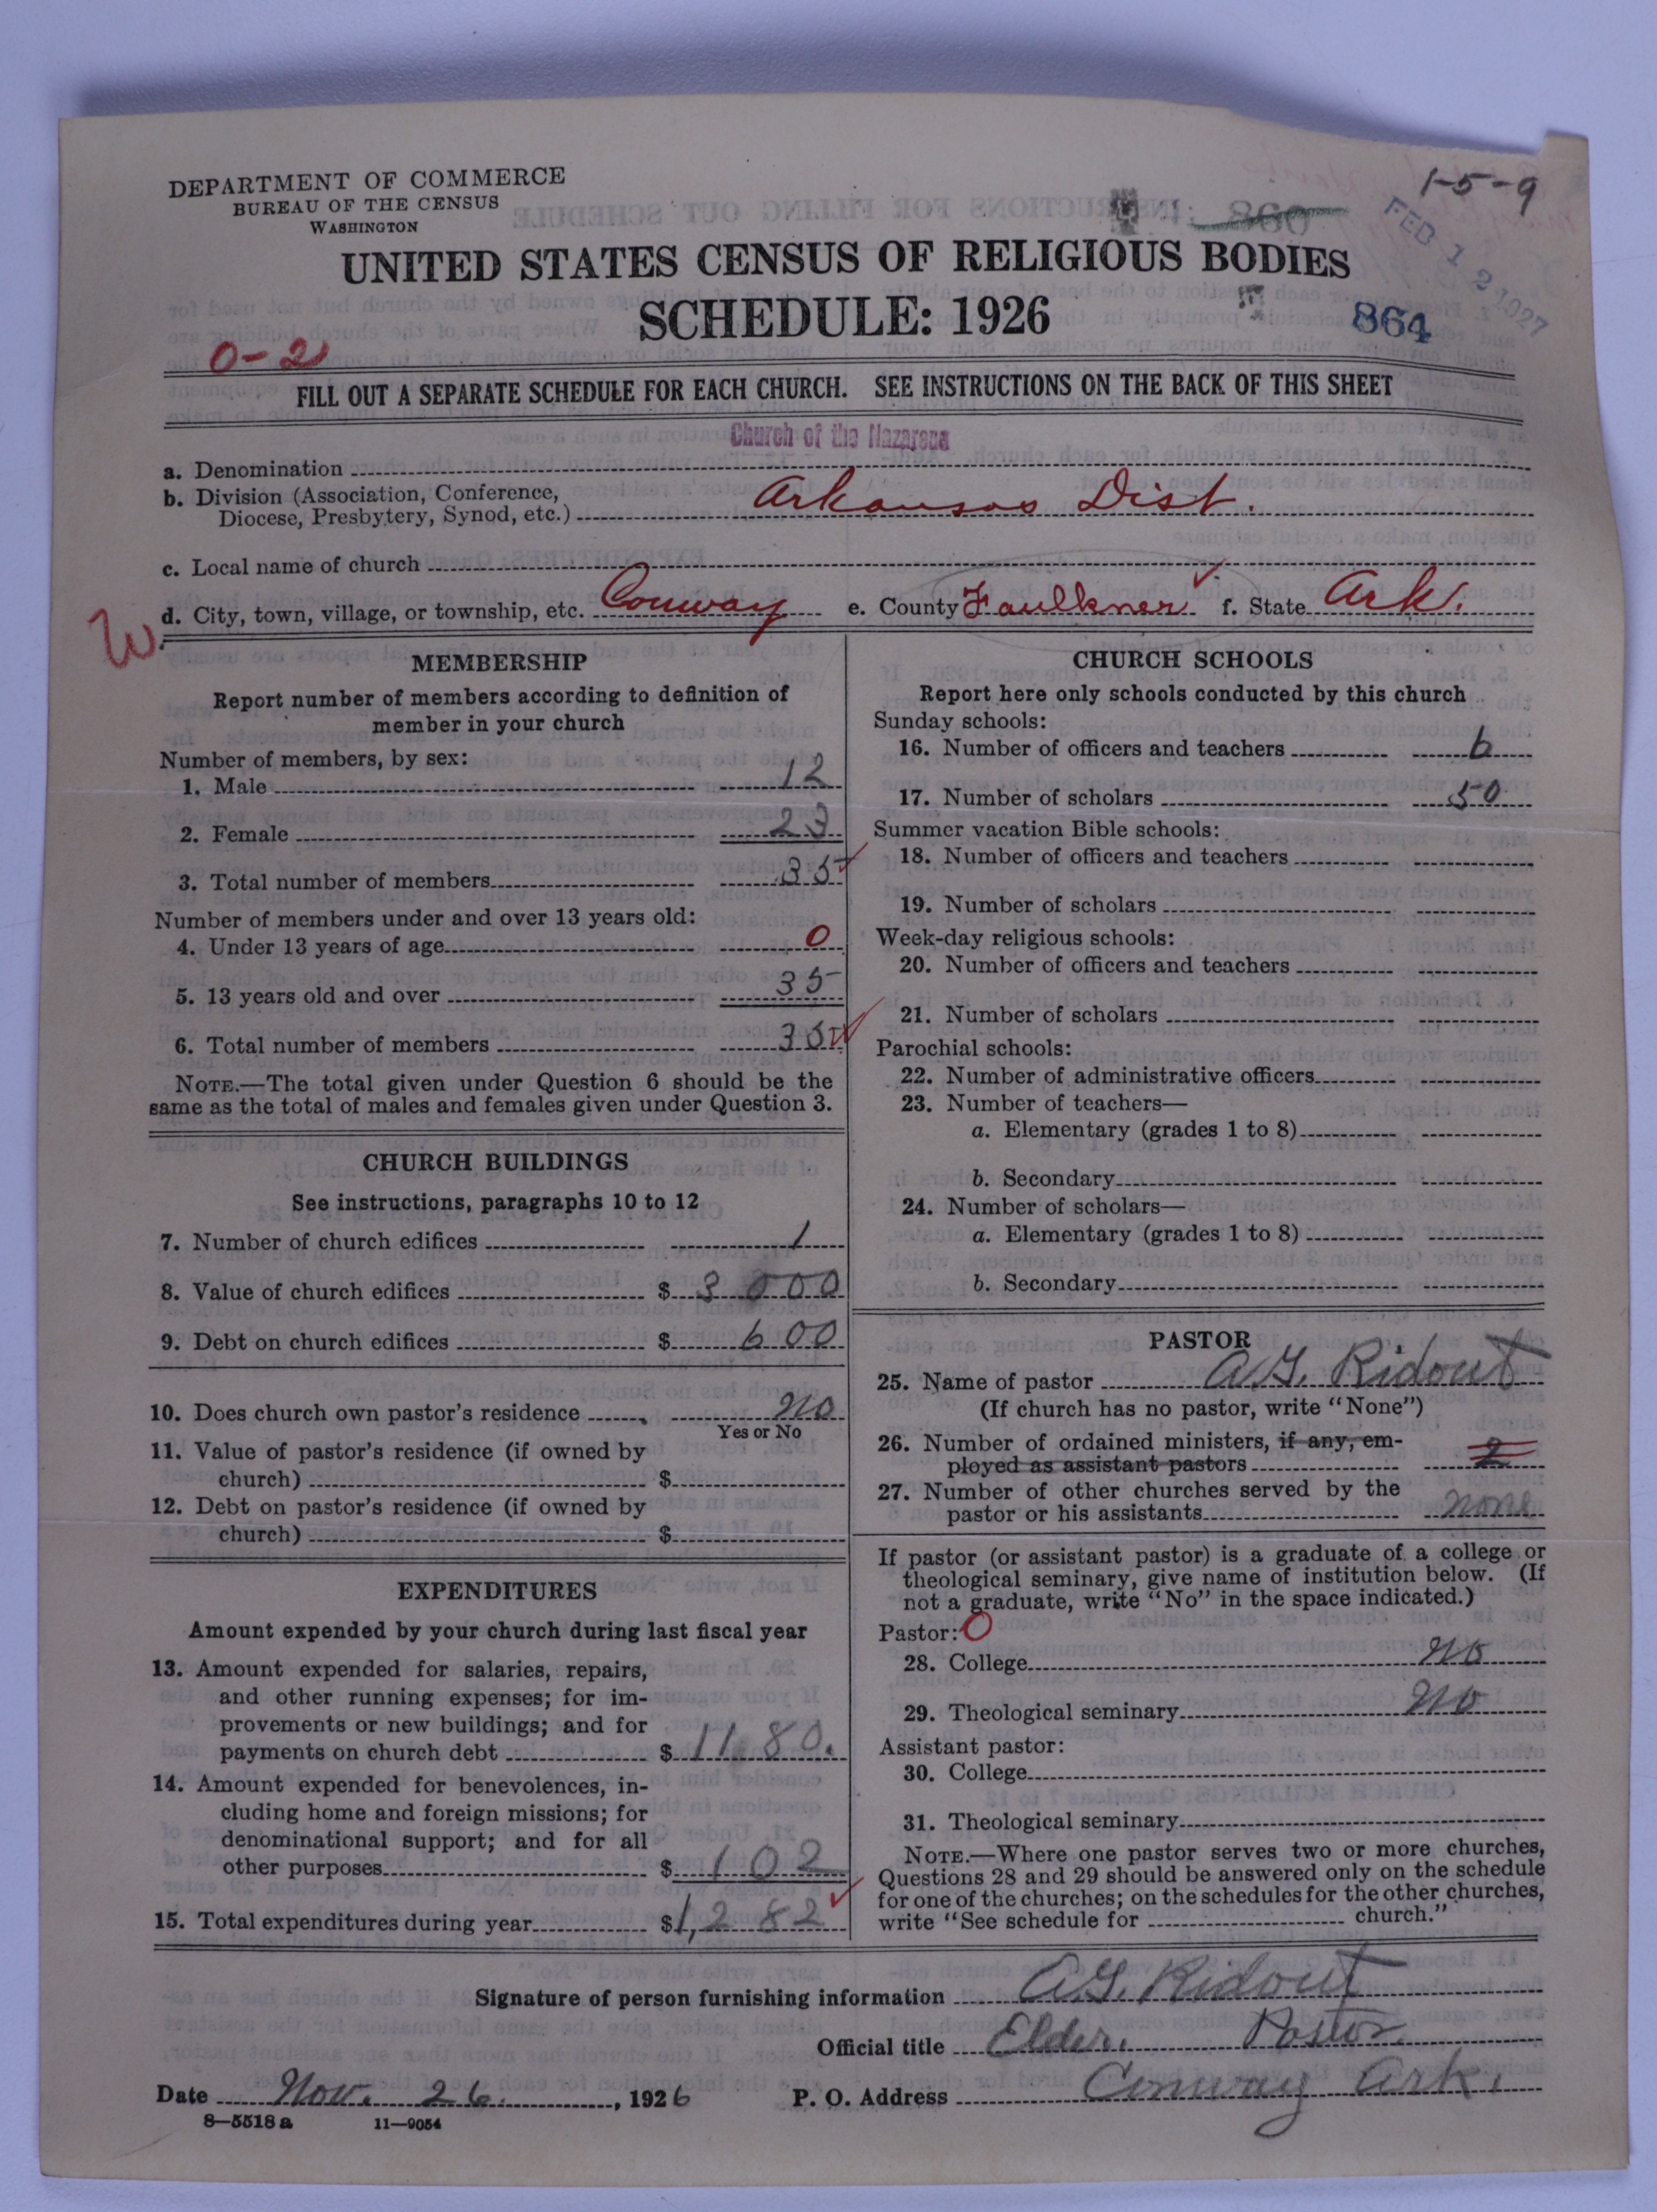 DEPARTMENT OF COMMERCE
BUREAU OF THE CENSUS
WASHINGTON
1-5-9
860
FEB 12 1927
UNITED STATES CENSUS OF RELIGIOUS BODIES
SCHEDULE: 1926
864
0-2
FILL OUT A SEPARATE SCHEDULE FOR EACH CHURCH. SEE INSTRUCTIONS ON THE BACK OF THIS SHEET
Church of the Nazarene
a. Denomination
b. Division (Association, Conference, Diocese, Presbytery, Synod, etc.) Arkansas Dist.
c. Local name of church
d. City, town, village, or township, etc. Conway e. County Faulkner f. State Ark.
W
MEMBERSHIP
Report number of members according to definition of
member in your church
Number of members, by sex:
1. Male 12
2. Female 23
3. Total number of members 35
Number of members under and over 13 years old:
4. Under 13 years of age 0
5. 13 years old and over 35
6. Total number of members 35
NOTE.—The total given under Question 6 should be the
same as the total of males and females given under Question 3.
CHURCH BUILDINGS
See instructions, paragraphs 10 to 12
7. Number of church edifices 1
8. Value of church edifices $ 3000
9. Debt on church edifices $ 600
10. Does church own pastor's residence no
Yes or No
11. Value of pastor's residence (if owned by
church) $
12. Debt on pastor's residence (if owned by
church) $
EXPENDITURES
Amount expended by your church during last fiscal year
13. Amount expended for salaries, repairs,
and other running expenses; for im-
provements or new buildings; and for
payments on church debt $ 1180.
14. Amount expended for benevolences, in-
cluding home and foreign missions; for
denominational support; and for all
other purposes $ 102
15. Total expenditures during year $ 1,282
CHURCH SCHOOLS
Report here only schools conducted by this church
Sunday schools:
16. Number of officers and teachers 6
17. Number of scholars 50
Summer vacation Bible schools:
18. Number of officers and teachers
19. Number of scholars
Week-day religious schools:
20. Number of officers and teachers
21. Number of scholars
Parochial schools:
22. Number of administrative officers
23. Number of teachers—
a. Elementary (grades 1 to 8)
b. Secondary
24. Number of scholars—
a. Elementary (grades 1 to 8)
b. Secondary
PASTOR
25. Name of pastor A.G. Ridout
(If church has no pastor, write "None")
26. Number of ordained ministers, if any, em-
ployed as assistant pastors 2
27. Number of other churches served by the
pastor or his assistants none
If pastor (or assistant pastor) is a graduate of a college or
theological seminary, give name of institution below. (If
not a graduate, write "No" in the space indicated.)
Pastor: O
28. College no
29. Theological seminary no
Assistant pastor:
30. College
31. Theological seminary
NOTE.—Where one pastor serves two or more churches,
Questions 28 and 29 should be answered only on the schedule
for one of the churches; on the schedules for the other churches,
write "See schedule for church."
Signature of person furnishing information A.G. Ridout
Official title Elder. Pastor.
Date Nov. 26., 1926 P. O. Address Conway Ark.
8—5518a 11—9054